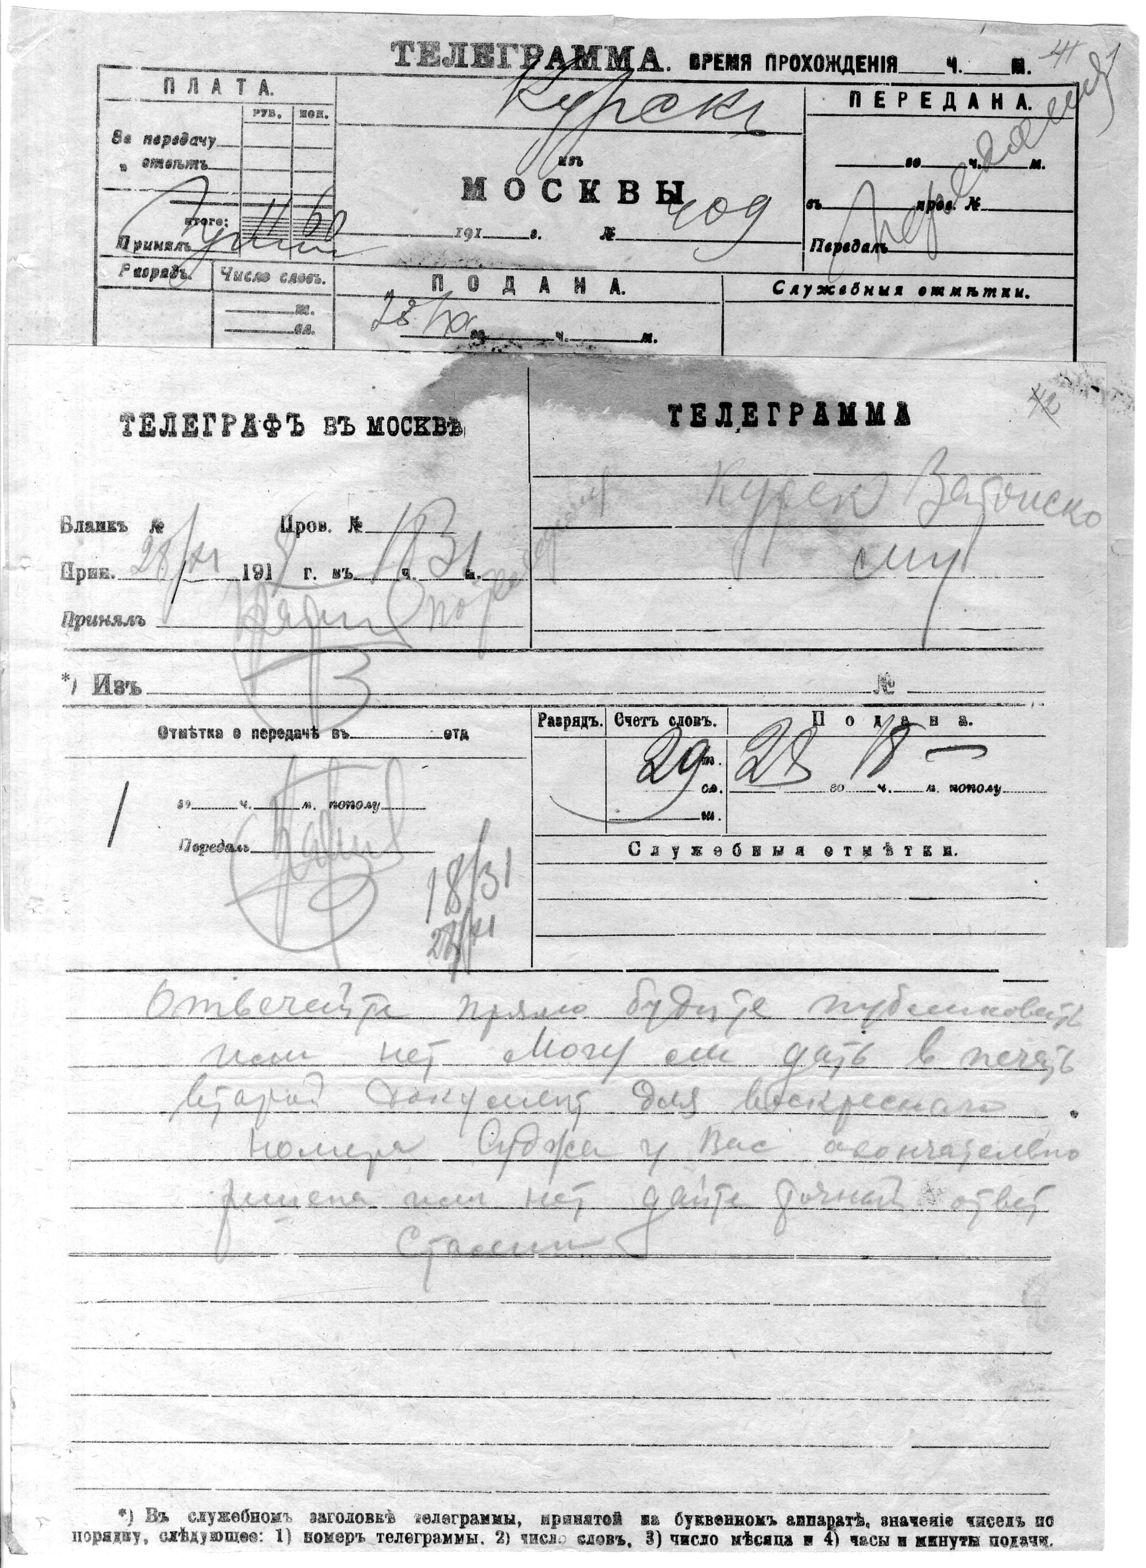 ТЕЛЕГРАММА. ВРЕМЯ ПРОХОЖДЕНІЯ ч. м.
41
ПЛАТА.
РУБ. КОП.
За передачу
„ отвѣтъ
ИТОГО: 11 60
Принялъ
Курскъ
изъ
МОСКВЫ
191 г. № 409
ПЕРЕДАНА.
во ч. м.
въ пров. №
Передалъ
Разрядъ. Число словъ.
ш.
сл.
ПОДАНА.
28
ч. м.
Служебныя отмѣтки.
ТЕЛЕГРАФЪ ВЪ МОСКВѢ
Бланкъ № Пров. №
Прин. 28/XI 1918 г. въ 18 ч. 31 м.
Принялъ
ТЕЛЕГРАММА
42
Курск Затонско
му
*) Изъ №
Отмѣтка о передачѣ въ отд
во ч. м. пополу
Передалъ
18/31
28/XI
Разрядъ. Счетъ словъ. Подана.
29 сл. 28 во 18 ч. — м. пополу
ш.
Служебныя отмѣтки.
Отвечайте прямо будите публиковать
или нет Могу ли дать в печать
второй документ для воскреснаго
номера Суджа у Вас окончательно
решена или нет дайте точный ответ
Сталин
*) Въ служебномъ заголовкѣ телеграммы, принятой на буквенномъ аппаратѣ, значеніе чиселъ по
порядку, слѣдующее: 1) номеръ телеграммы. 2) число словъ, 3) число мѣсяца и 4) часы и минуты подачи.